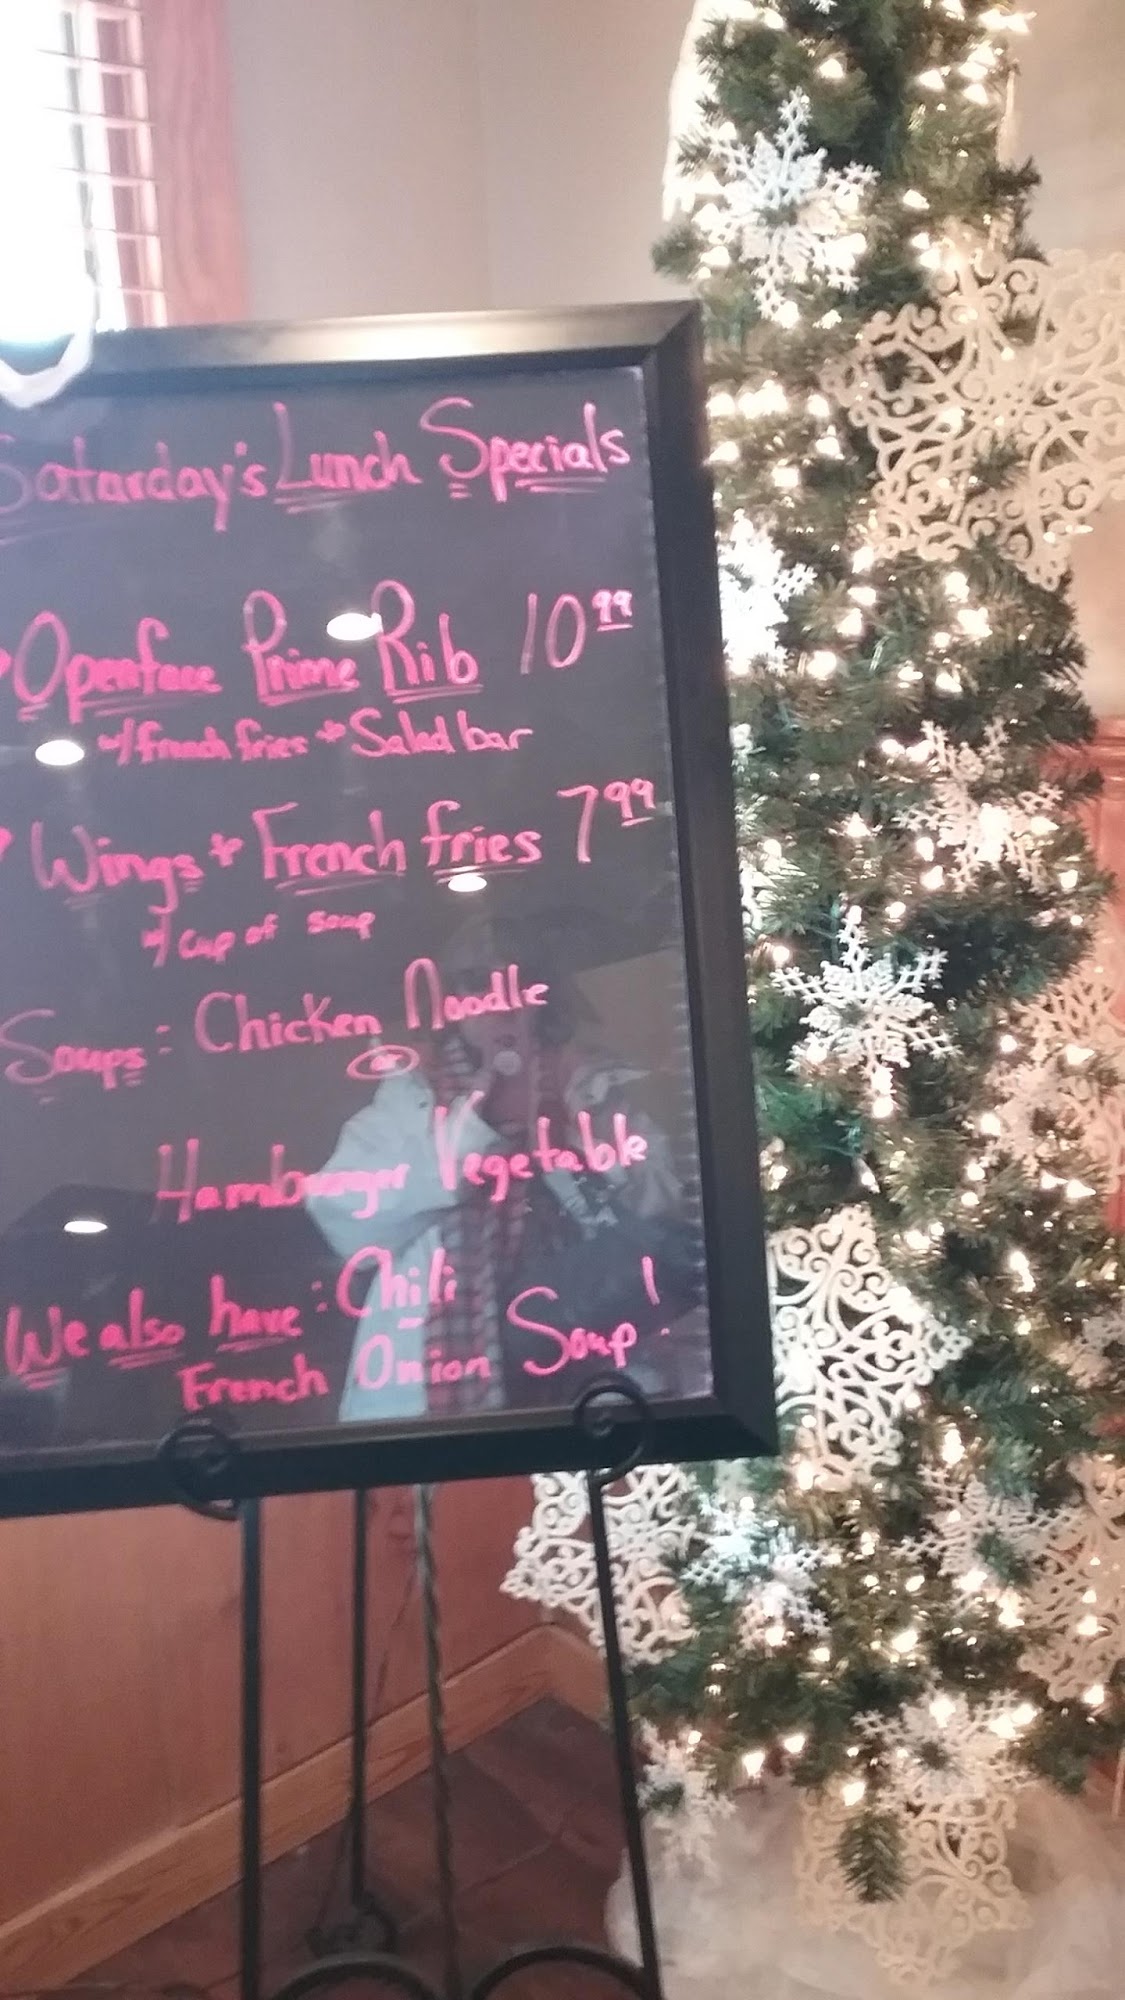 Saturday's Lunch Specials
Openface Prime Rib 10.99
w/ french fries + Salad bar
Wings + French fries 7.99
w/ cup of soup
Soups: Chicken Noodle
or
Hamburger Vegetable
We also have: Chili
French Onion Soup!